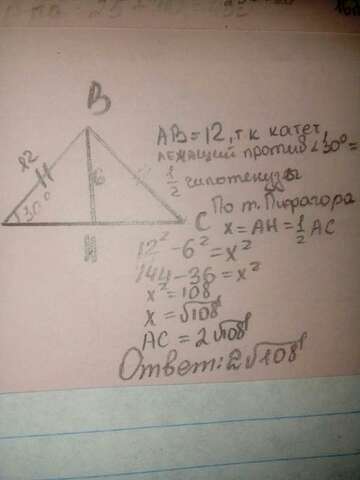 B
AB=12, т к катет,
лежащий против ∠30°=
12
6
1/2 гипотенузы
30°
C
H
По т. Пифагора
x = AH = 1/2 AC
12² - 6² = x²
144 - 36 = x²
x² = 108
x = √108
AC = 2√108
Ответ: 2√108